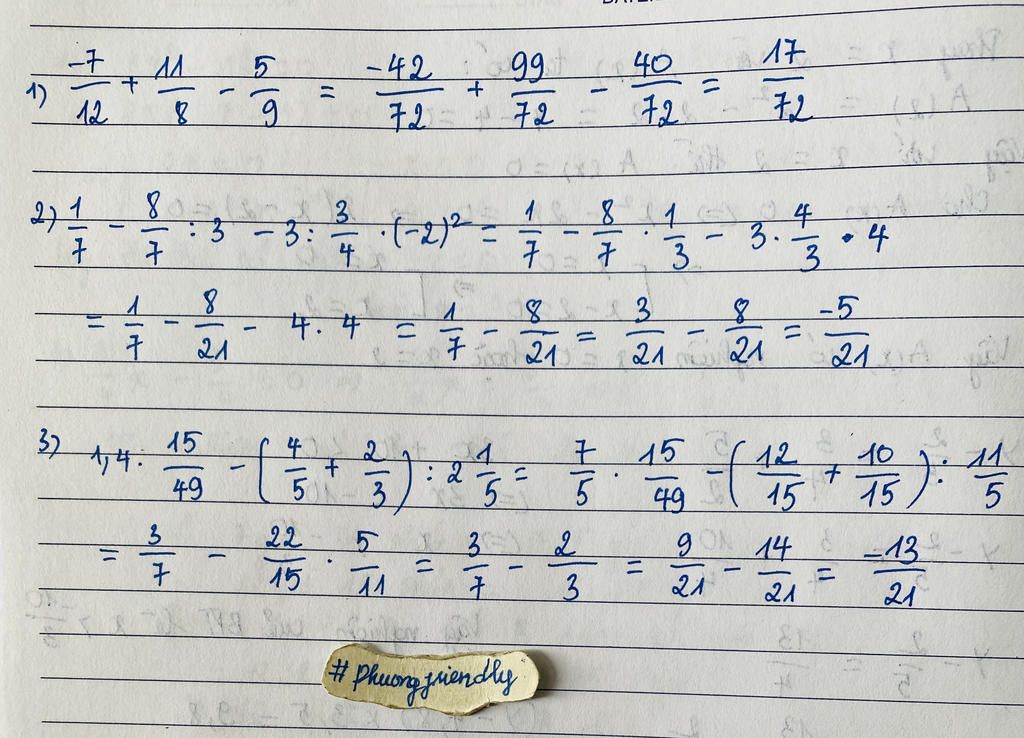 1) -7/12 + 11/8 - 5/9 = -42/72 + 99/72 - 40/72 = 17/72
2) 1/7 - 8/7 : 3 - 3 : 3/4 · (-2)² = 1/7 - 8/7 · 1/3 - 3 · 4/3 · 4
= 1/7 - 8/21 - 4 · 4 = 1/7 - 8/21 = 3/21 - 8/21 = -5/21
3) 1,4 · 15/49 - (4/5 + 2/3) : 2 1/5 = 7/5 · 15/49 - (12/15 + 10/15) : 11/5
= 3/7 - 22/15 · 5/11 = 3/7 - 2/3 = 9/21 - 14/21 = -13/21
#phuongfriendly